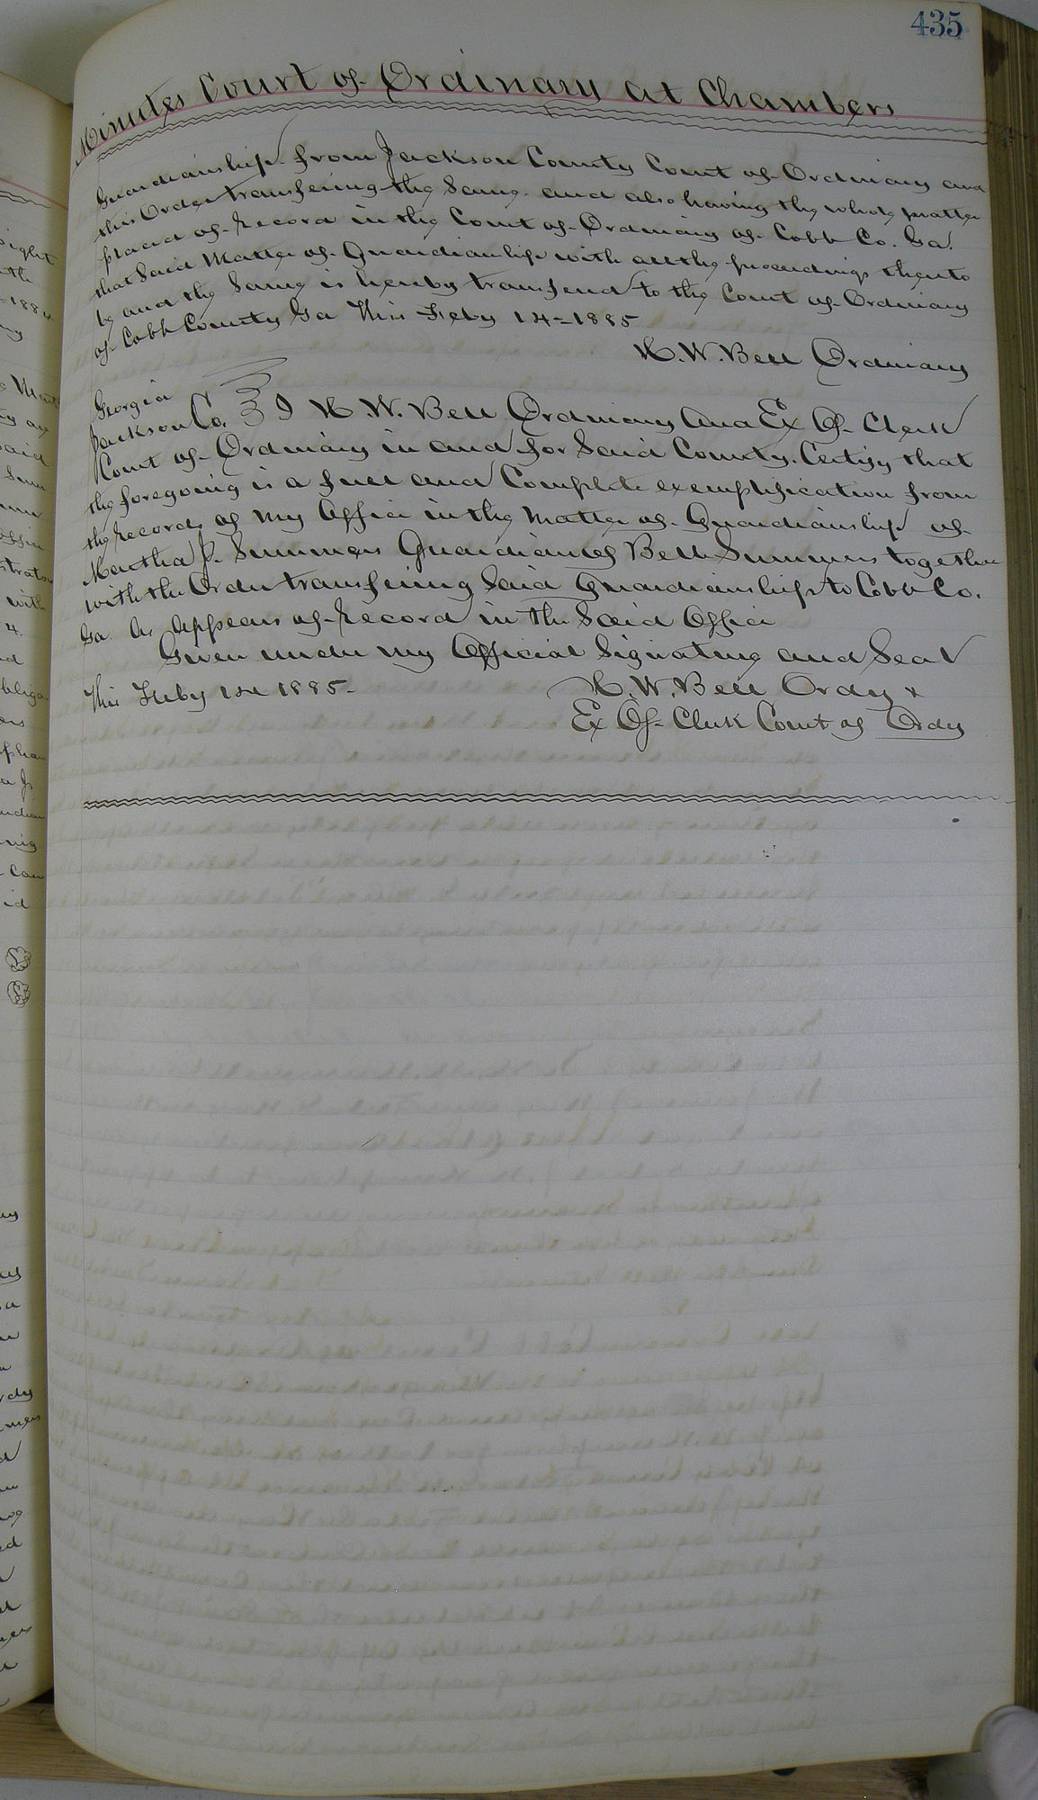 435
Minutes Court of Ordinary at Chambers
Guardianship from Jackson County Court of Ordinary and
this Order transfering the Same and also having the whole matter
placed of record in the Court of Ordinary of Cobb Co. Ga.
that Said Matter of Guardianship with all the proceedings thereto
be and the Same is hereby transferred to the Court of Ordinary
of Cobb County Ga This Feby 14-1885
H. W. Bell Ordinary
Georgia
Jackson Co. I H W. Bell Ordinary and Ex Of. Clerk
Court of Ordinary in and for Said County. Certify that
the foregoing is a full and Complete exemplification from
the records of my Office in the Matter of Guardianship of
Martha J. Summers Guardian of Bell Summers together
with the Order transfering Said Guardianship to Cobb Co.
Ga. As Appears of record in the Said Office
Given under my Official Signature and Seal
This Feby 14 1885-
H. W. Bell Ordy &
Ex Of- Clerk Court of Ordy